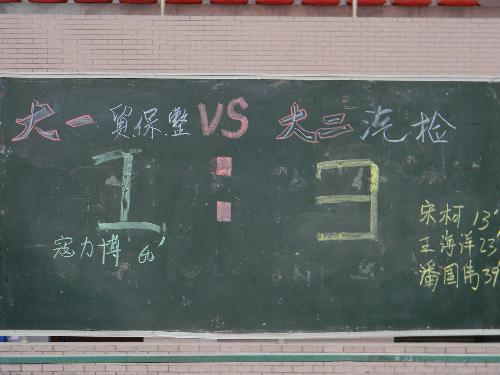 大一 貿保整 VS 大二 汽检
1 : 3
寇力博 60'
宋柯 13'
王海洋 23'
潘国伟 39'